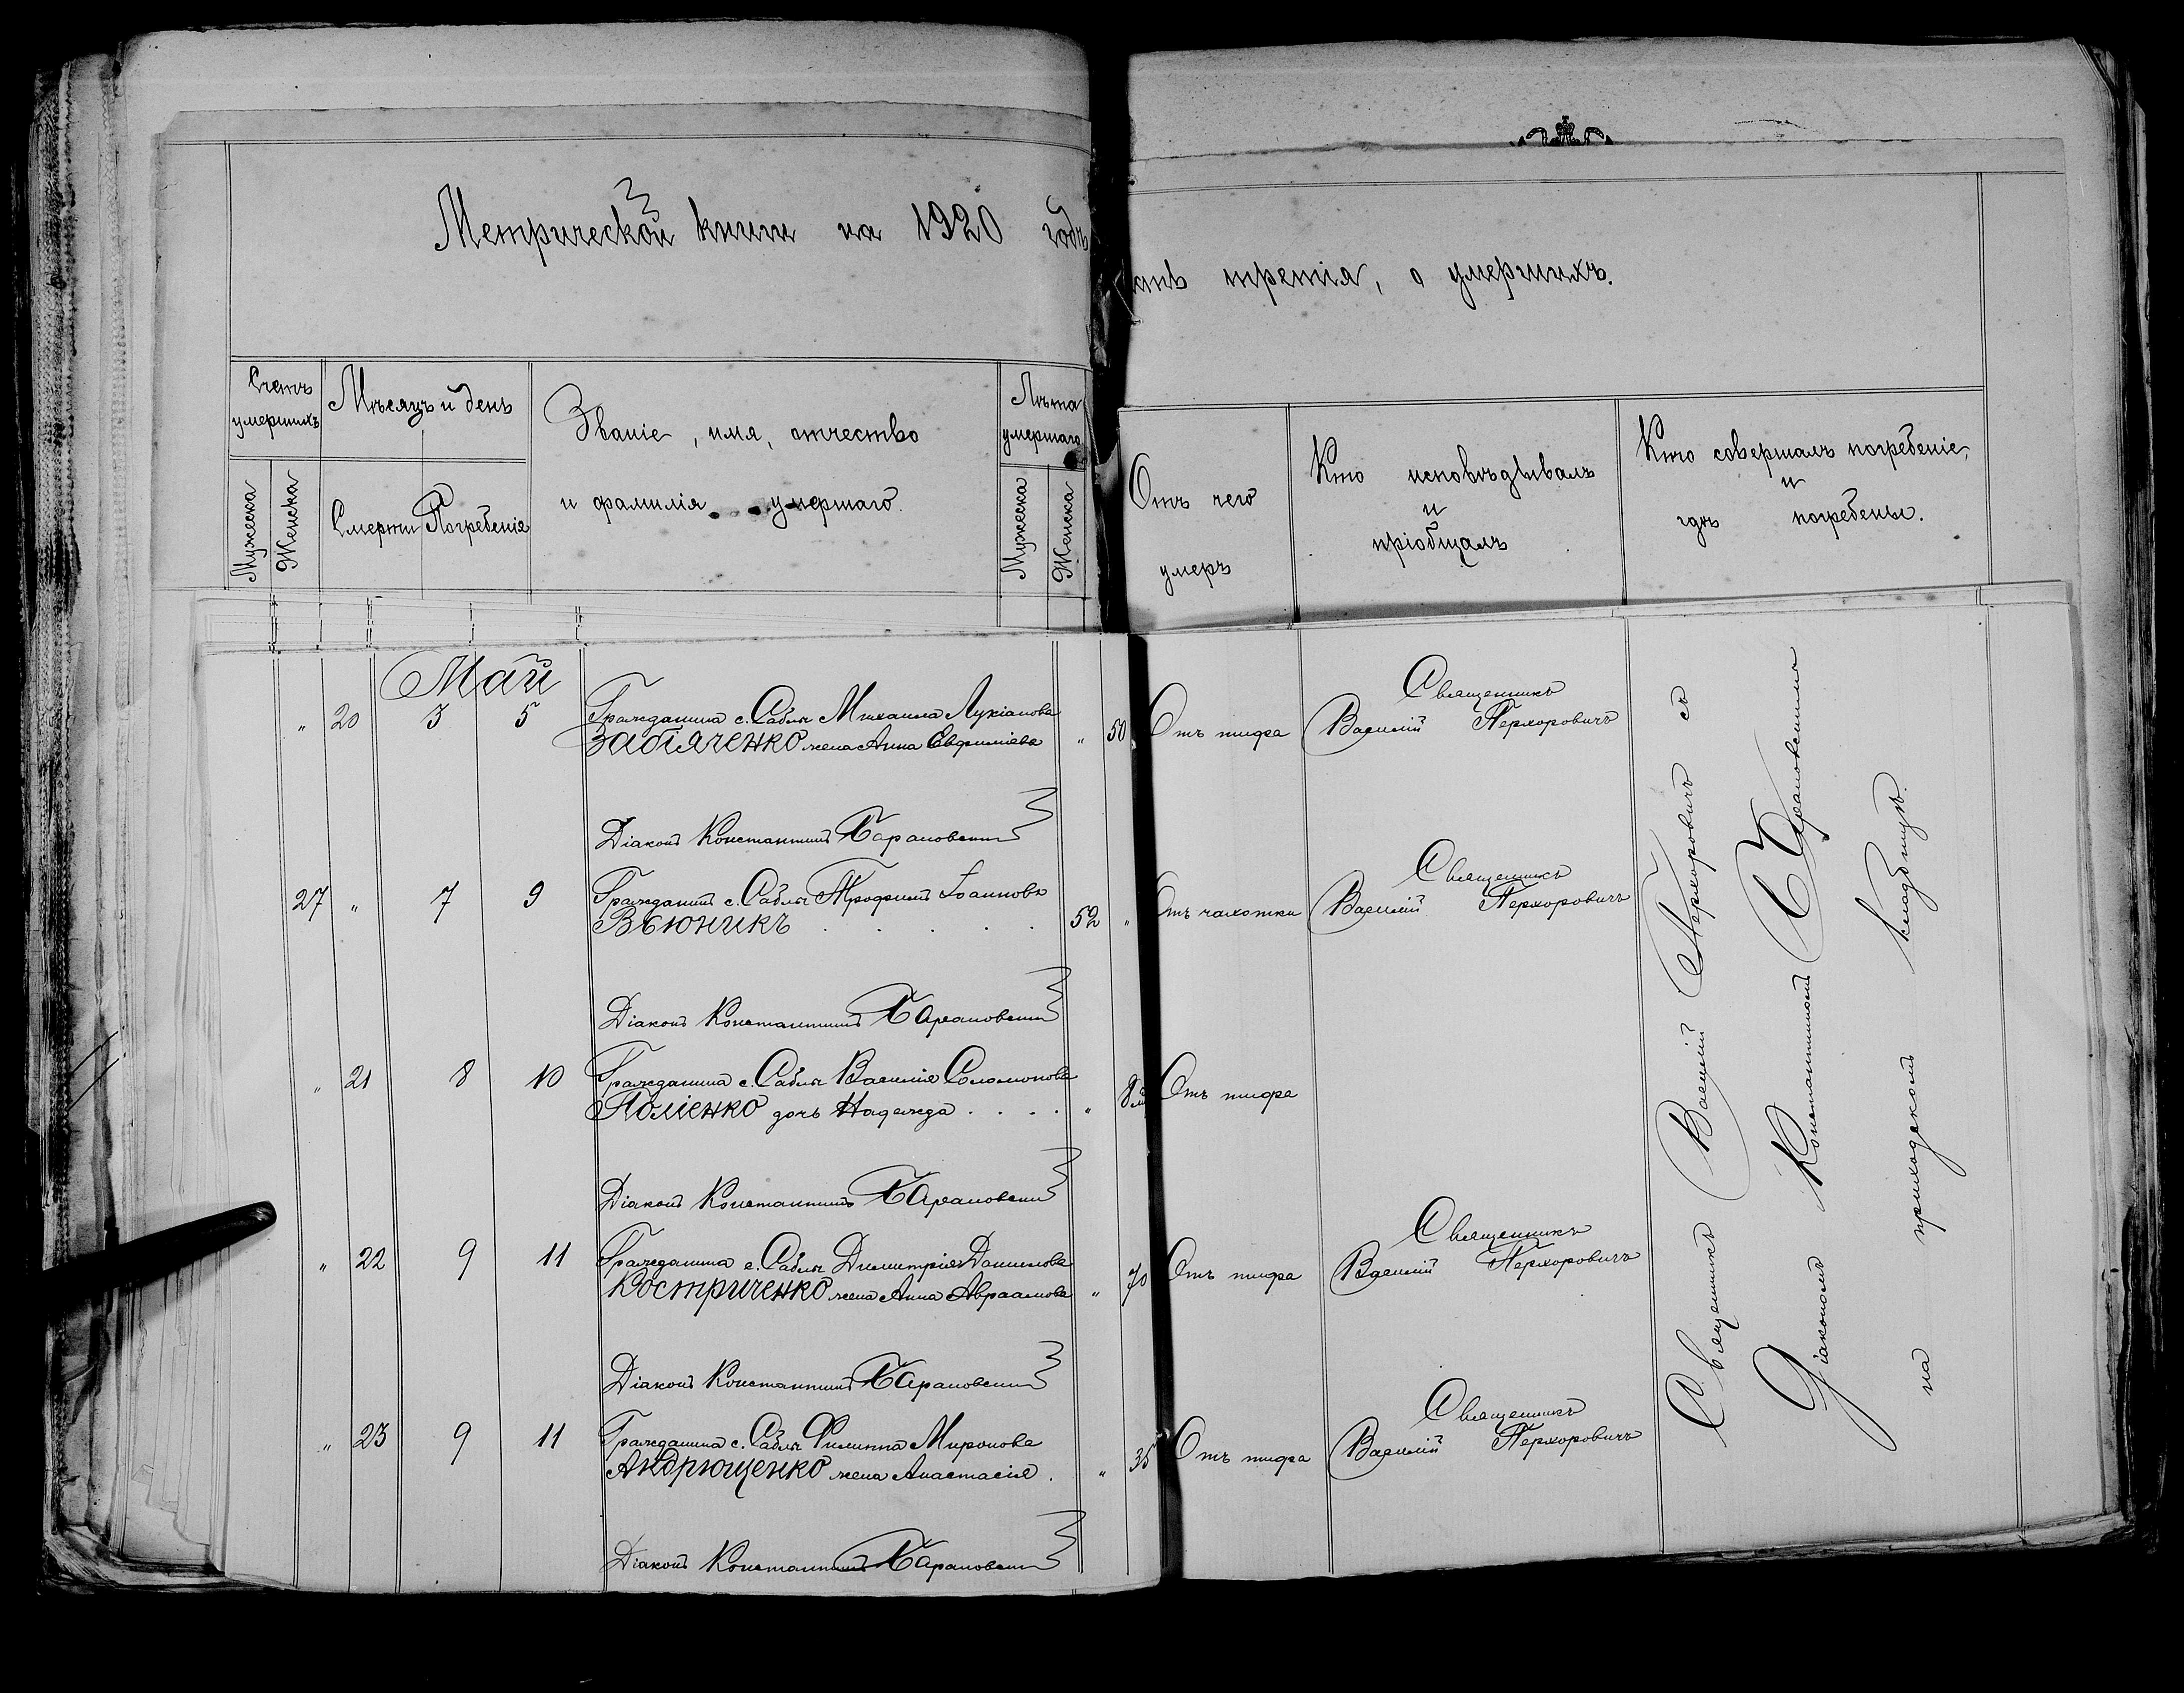 Метрической книги на 1920 годъ
третія, о умершихъ.
Счетъ умершихъ
Мужеска
Женска
Мѣсяцъ и день
Смерти
Погребенія
Званіе, имя, отчество
и фамилія умершаго.
Лѣта умершаго
Мужеска
Женска
Отъ чего
умеръ
Кто исповѣдывалъ
и
пріобщалъ
Кто совершалъ погребеніе,
и
гдѣ погребены.
Май
" 20 3 5 Гражданина с. Саблы Михаила Лукіанова
Забіяченко жена Анна Евфиміева " 50 Отъ тифа
Священникъ
Василій Перхоровичъ
Діаконъ Константинъ Барановскій
27 " 7 9 Гражданинъ с. Саблы Трофимъ Іоанновъ
Вьюникъ 52 " Отъ чахотки
Священникъ
Василій Перхоровичъ
Діаконъ Константинъ Барановскій
" 21 8 10 Гражданина с. Саблы Василія Соломонова
Поліенко дочь Надежда . . . . " 8 м Отъ тифа
Діаконъ Константинъ Барановскій
" 22 9 11 Гражданина с. Саблы Димитрія Даниилова
Костриченко жена Анна Авраамова " 70 Отъ тифа
Священникъ
Василій Перхоровичъ
Діаконъ Константинъ Барановскій
" 23 9 11 Гражданина с. Саблы Филиппа Миронова
Андрющенко жена Анастасія . " 35 Отъ тифа
Священникъ
Василій Перхоровичъ
Діаконъ Константинъ Барановскій
Священникъ Василій Перхоровичъ съ
Діакономъ Константиномъ Барановскимъ
на приходскомъ кладбищѣ.